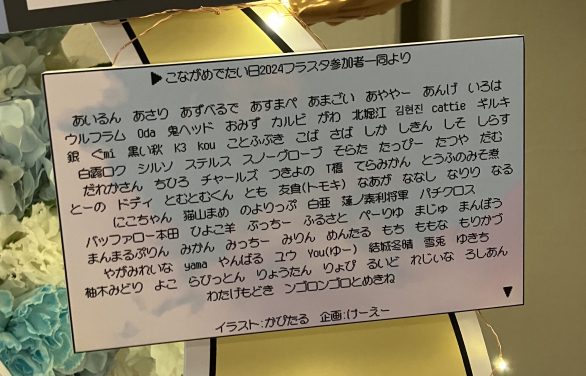 ▶こながめでたい日2024フラスタ参加者一同より
あいるん あさり あずべるで あすまぺ あまごい あややー あんげ いろは
ウルフラム Oda 鬼ヘッド おみず カルビ がわ 北堀江 김현진 cattie ギルキ
銀 ぐmi 黒い秋 K3 kou ことふぶき こば さば しか しきん しそ しらす
白霧ロク シルソ ステルス スノーグローブ そらた たっぴー たつや だむ
だれかさん ちひろ チャールズ つきよの T橋 てらみかん とうふのみそ煮
とーの ドディ とむとむくん とも 友貴(トモキ) なあが ななし なりり なる
にこちゃん 猫山まめ のよりっぷ 白亜 蓮ノ素利将軍 パチクロス
バッファロー本田 ひよこ羊 ぶっちー ふるさと ぺーりゆ まじゅ まんぼう
まんまるぷりん みかん みっちー みりん めんたる もち ももな もりかづ
やがみれいな yama やんばる ユウ You(ゆー) 結城冬晴 雪兎 ゆきち
柚木みどり よこ らびっとん りょうたん りょぴ るいど れじぃな ろしあん
わたげもどき ンゴロンゴロとめきね
▼
イラスト:かぴたる 企画:けーえー